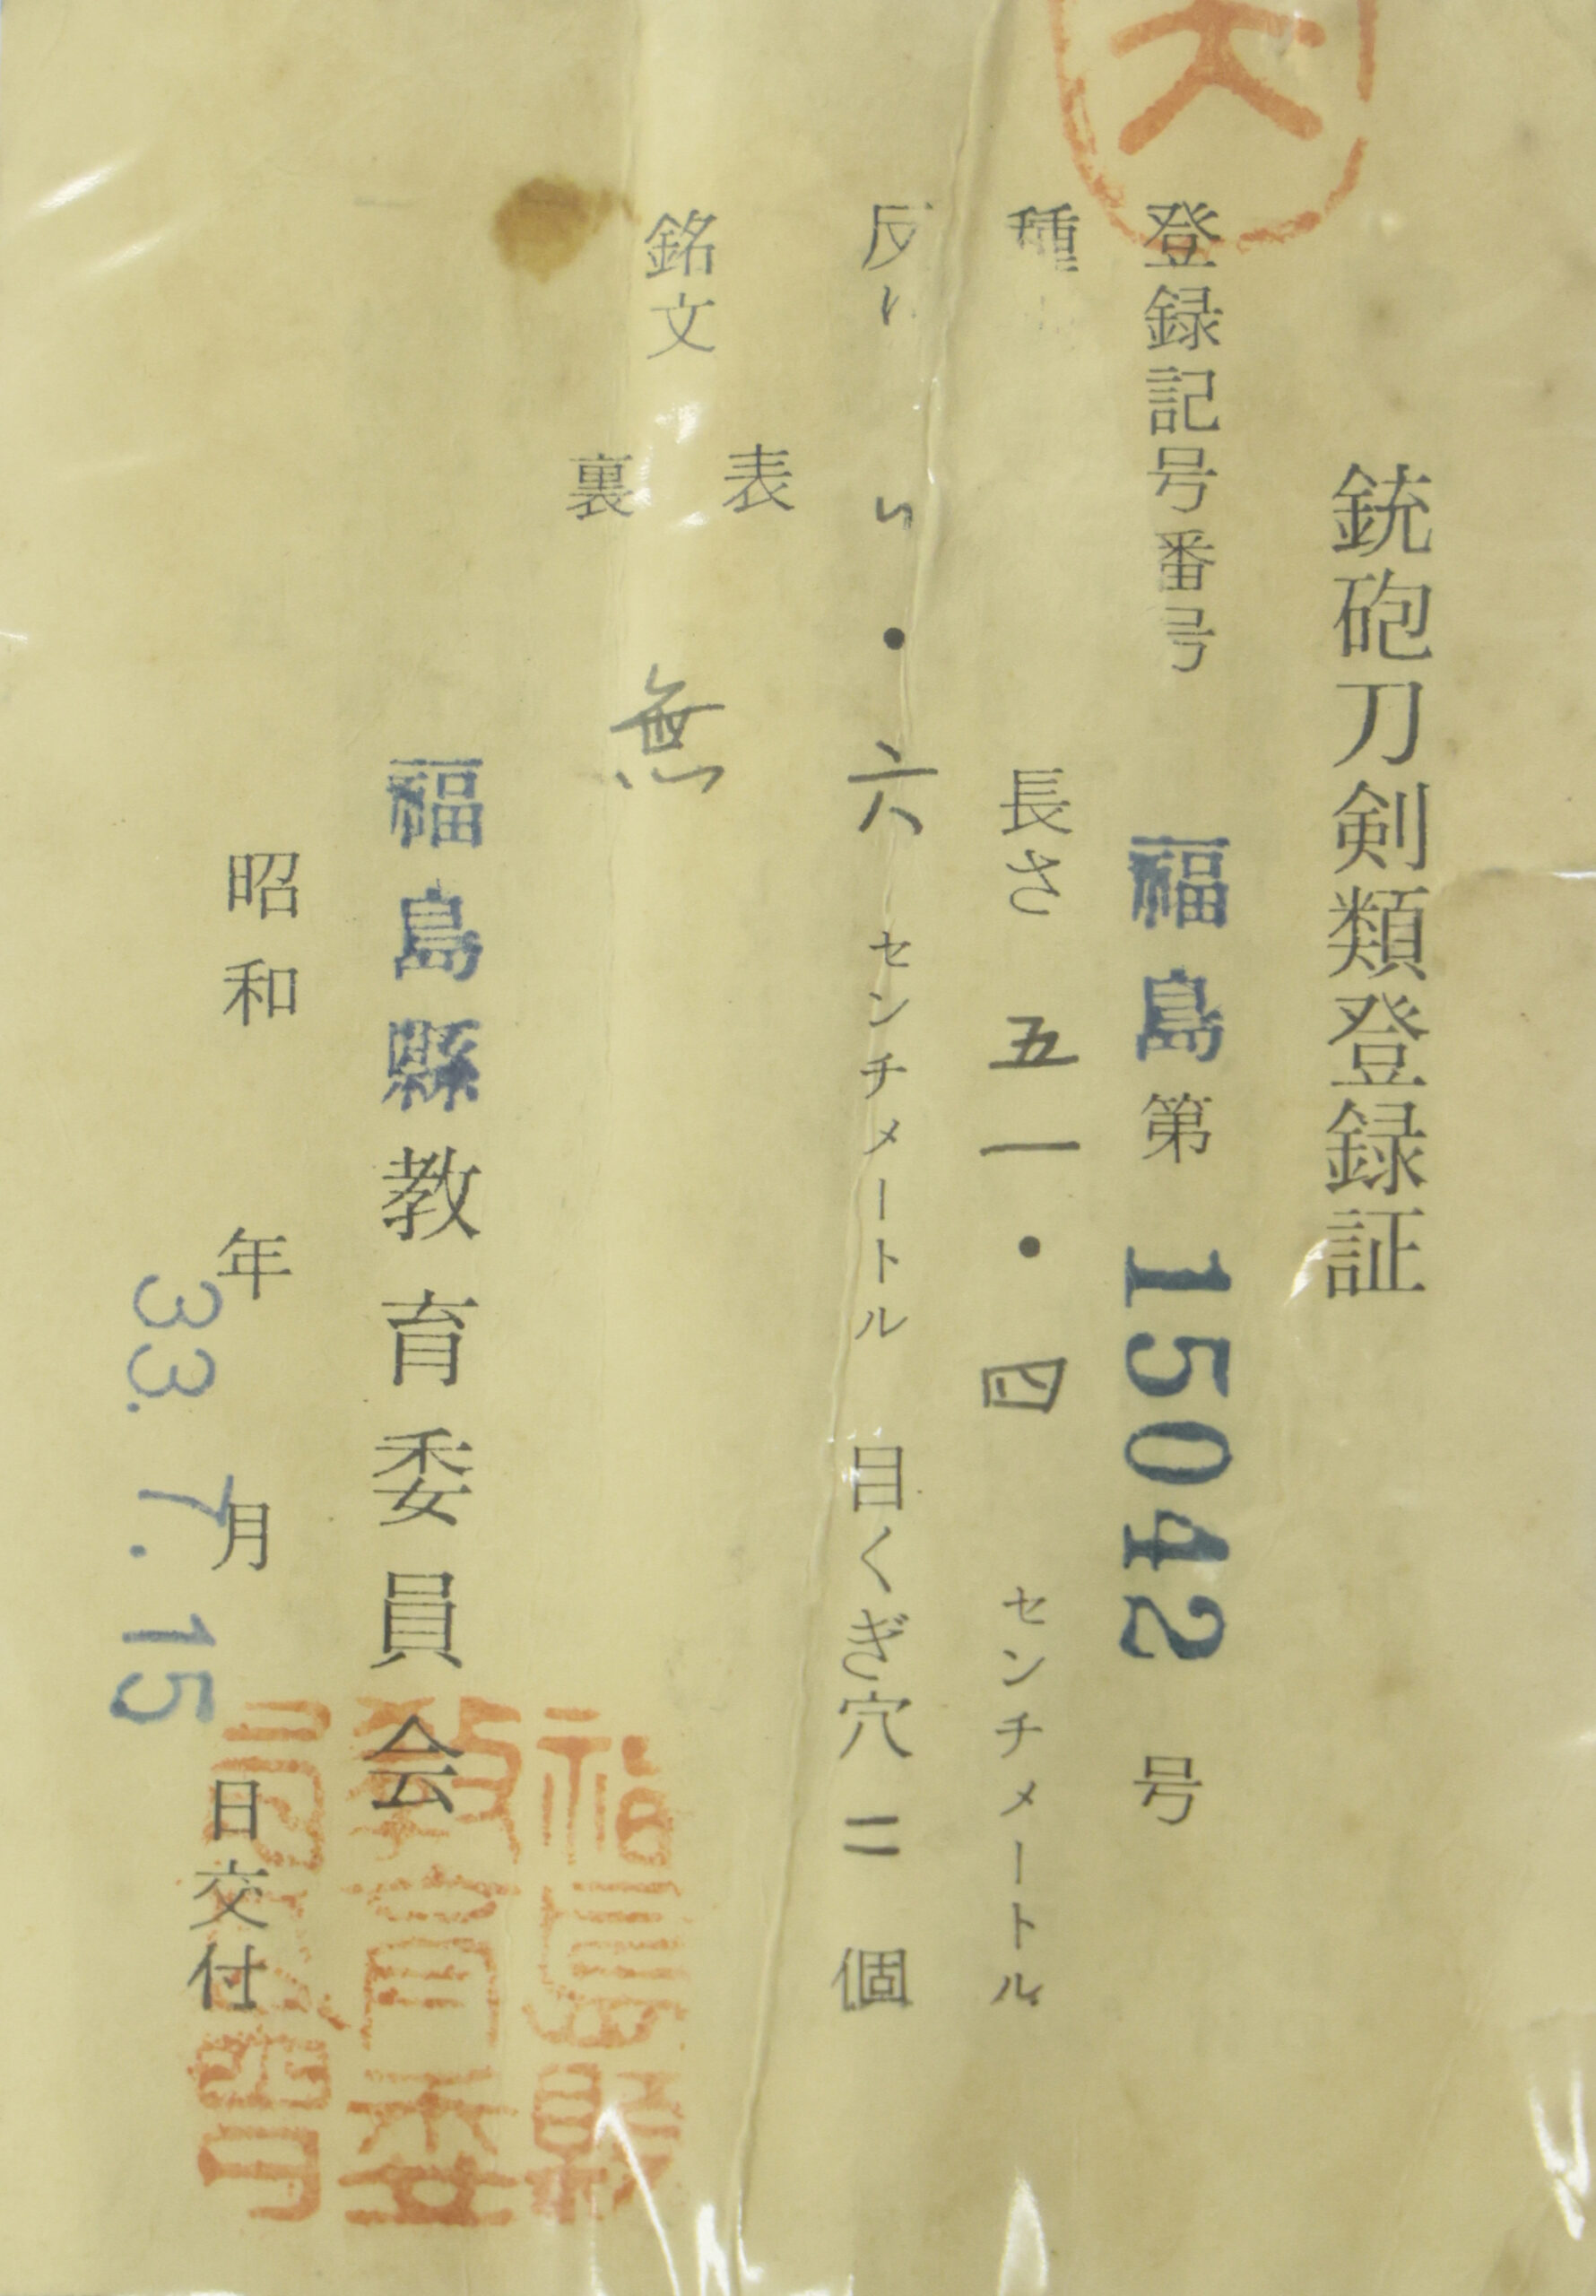 銃砲刀剣類登録証
登録記号番号 福島第 15042 号
種 長さ 五一・四 センチメートル
反り ・六 センチメートル 目くぎ穴 二 個
表
銘文 無
裏
福島縣教育委員会
昭和 年 月 日交付
33.7.15
大
福島縣
教育委